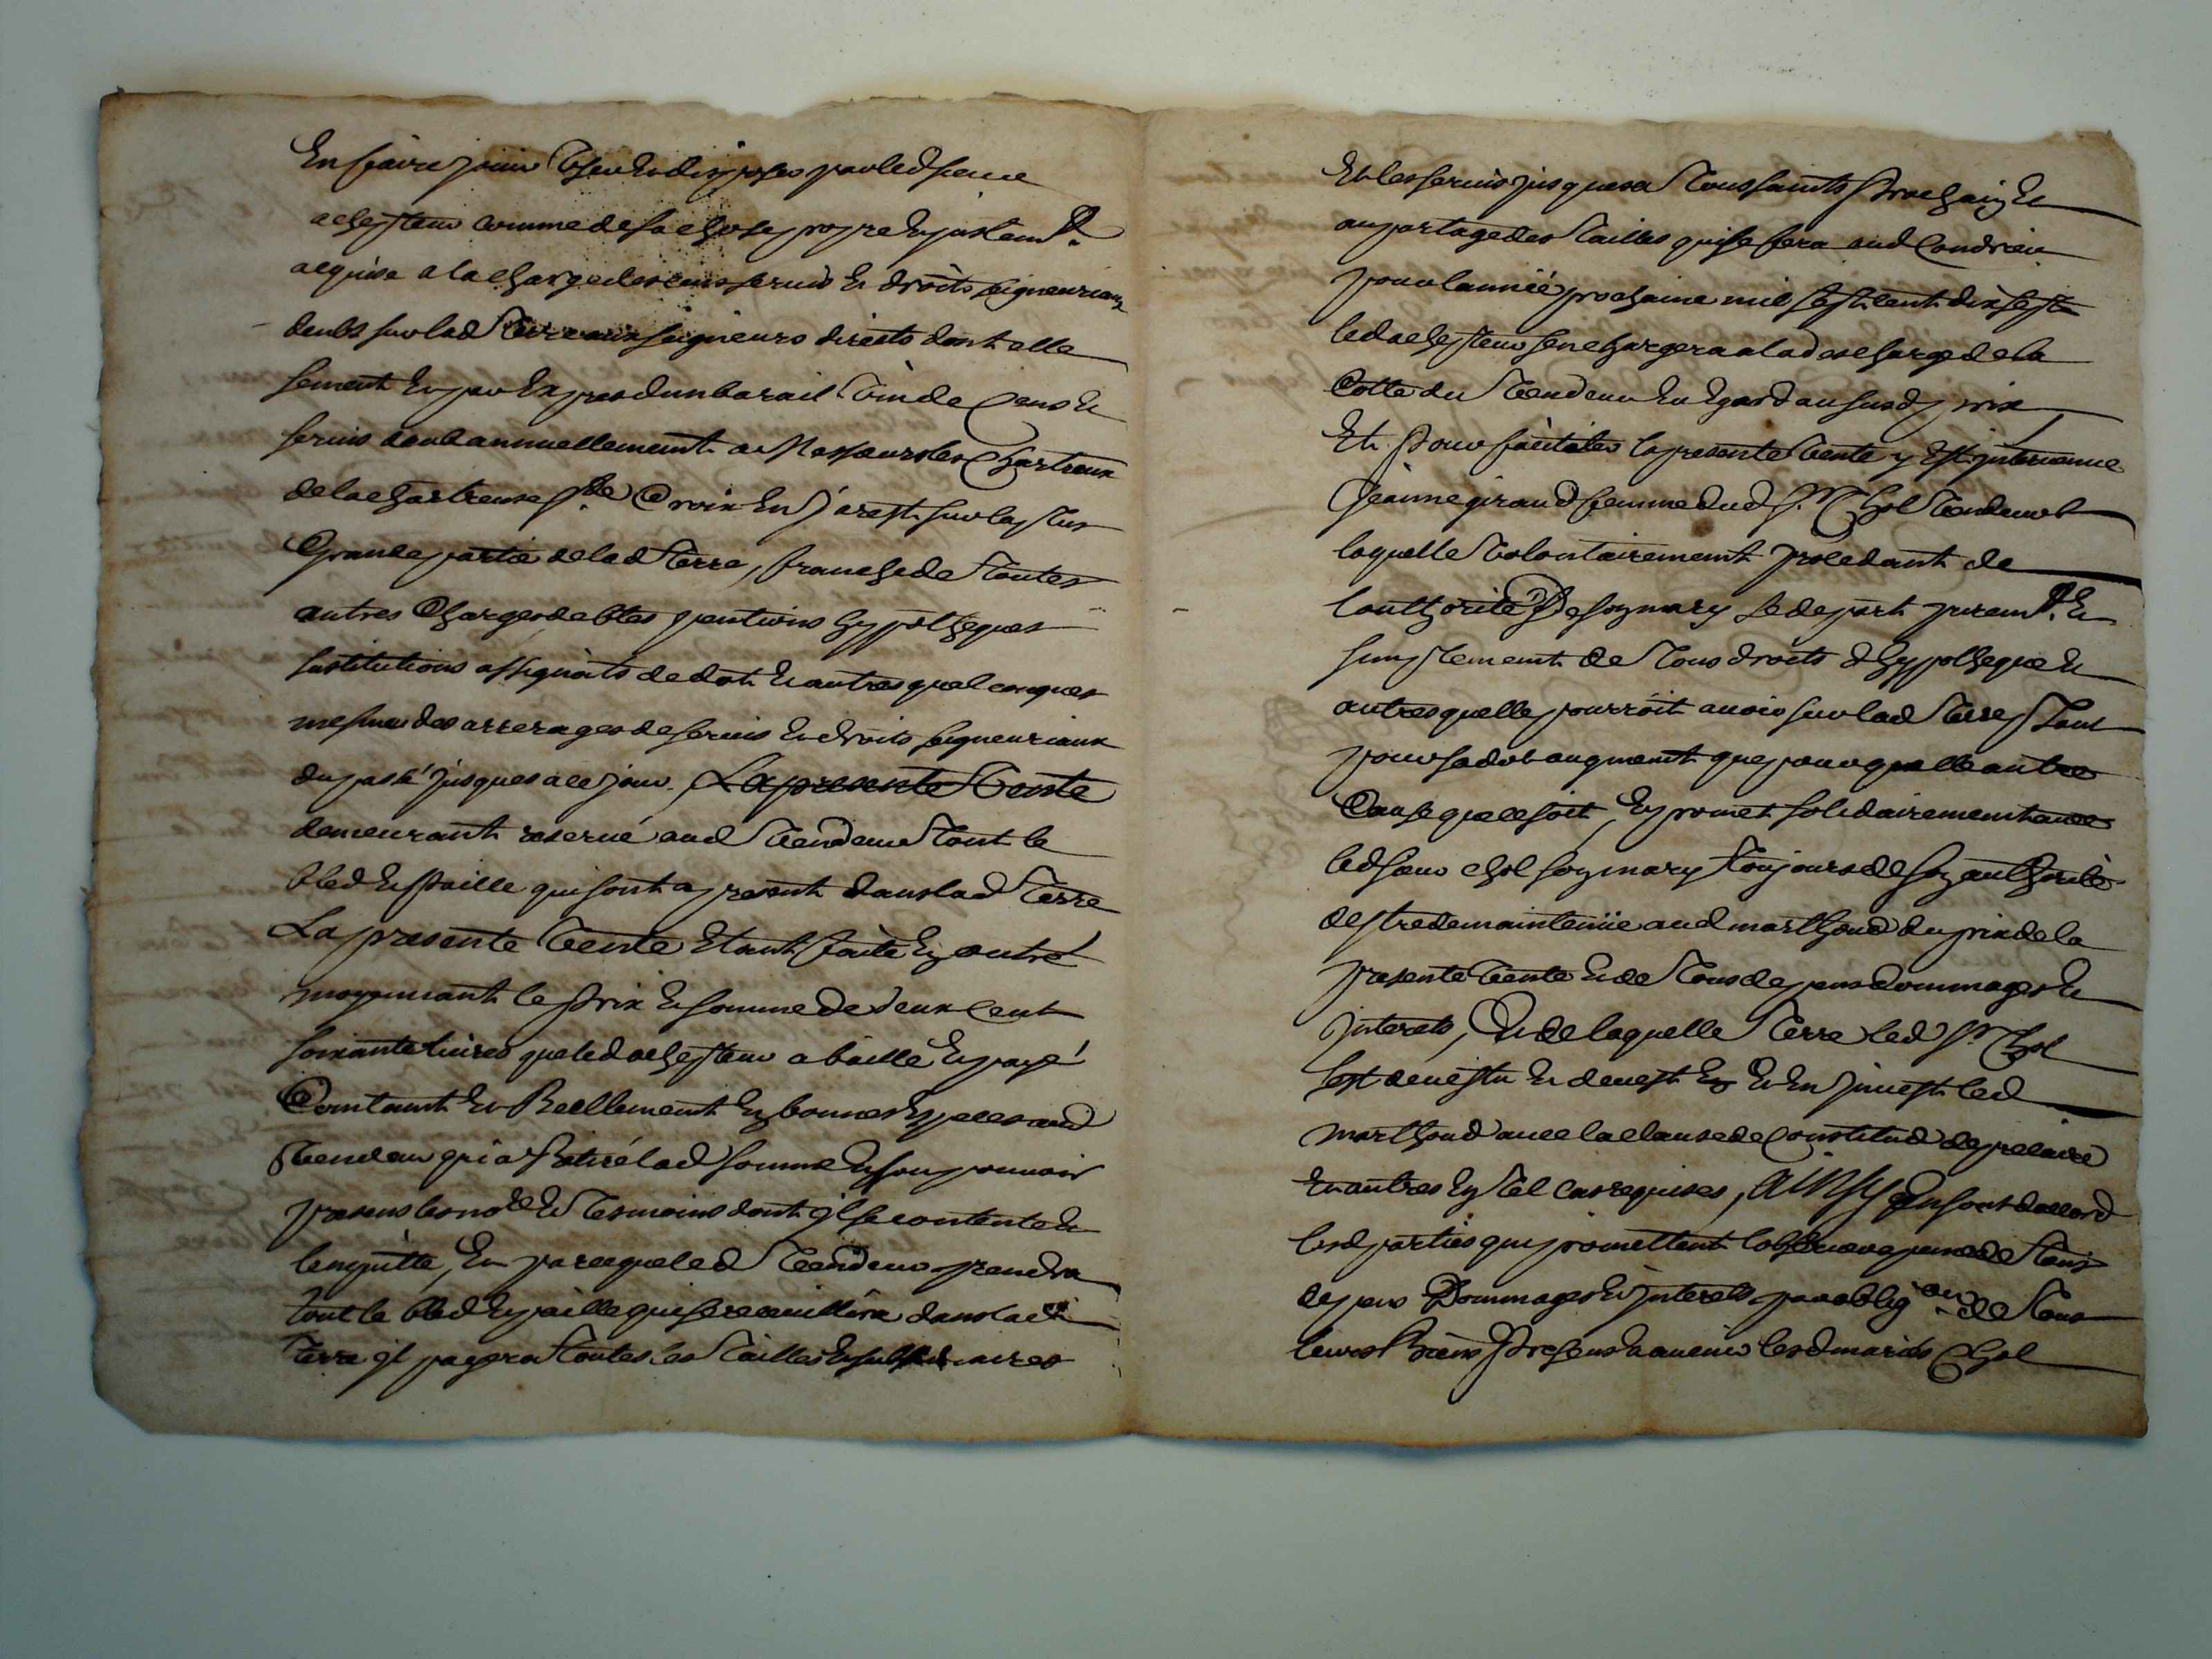 En faire jouir User En disposer par led sieur
achepteur comme de sa chose propre Et justemt.
acquise a la charge des cens servis Et droits seigneuriaux
deubs sur lad Terre aux seigneurs directs dont elle
se meut Et par Expres dun barail Vin de Cens Et
servis deub annuellement a Messieurs les Chartreux
de la chartreuse Ste Croix En Jarest sur la plus
Grande partie de lad Terre, franche de Toutes
autres Charges debtes pentions hyppotheques
sustitutions assignats de dot Et autres quelconques
mesmes des arrerages de servis Et droits seigneuriaux
du passé jusques a ce jour. La presente Vente
demeurant reservé aud Vendeur Tout le
bled Et paille qui sont a present dans lad Terre
La presente Vente Etant faite En outre
moyennant le prix Et somme de deux Cent
soixante livres que led achepteur a baillé Et payé
Contant Et Reellement En bonnes Especes aud
Vendeur qui a Retiré lad somme En son pouvoir
presens les nore Et Tesmoins dont il se contente Et
lenquitte, Et parceque led Vendeur prendra
tout le bled Et paille qui se recueillira dans lad
Terre il payera Toutes les Tailles Et
Et les servis jusques a Toussaints Prochain Et
au partage des Tailles qui se fera aud Condrieu
pour lannéé prochaine mil sept cent dix sept
led achepteur sen chargera a la descharge de la
Cotte du Vendeur Eu Egard au susd prix
Et Pour faciliter la presente Vente y Est intervenue
Jeanne giraud femme dud Sr. Chol Vendeur
laquelle Volontairement procedant de
lauthorité De son mary se depart puremt. Et
simplement de Tous droits dhyppotheque Et
autres quelle pourroit avoir sur lad Terre Tant
pour sa dot augment que pour quelle autre
Cause que ce soit, En promet solidairement avec
led sieur chol son mary Toujours de son authorité
destre de maintenüe aud marthoud du prix de la
presente Vente Et de Tous depens dommages Et
interets, Et de laquelle Terre led Sr. Chol
sest devestu Et devest Et En jnvest led
marthoud avec la clause de Constitud de precaire
Et autres En Tel cas requises, AINSY En sont daccord
lesd parties qui promettent lobserver a peine de Tous
depens Dommages Et jnterets par obligon de Tous
leurs Biens Presens Et avenir lesd mariés Chol